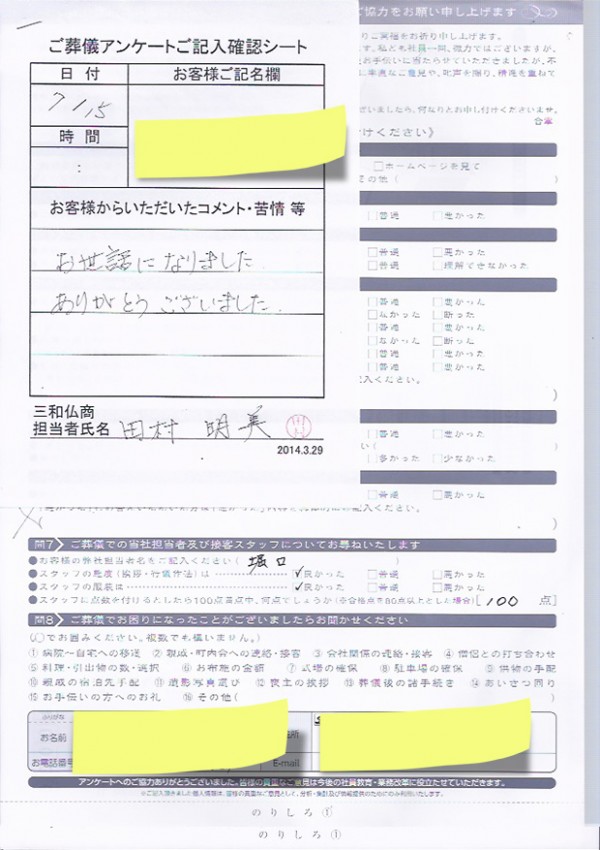 ご協力をお願い申し上げます
ご葬儀アンケートご記入確認シート
日付
お客様ご記名欄
7/15
時間
:
お客様からいただいたコメント・苦情 等
お世話になりました
ありがとうございました.
三和仏商
担当者氏名 田村 明美
2014.3.29
合掌
けください》
□ホームページを見て
の他(
□普通 □悪かった
□普通 □悪かった
□普通 □理解できなかった
□普通 □悪かった
□なかった □断った
□普通 □悪かった
□なかった □断った
□普通 □悪かった
□普通 □悪かった
記入ください。
□普通 □悪かった
□多かった □少なかった
□普通 □悪かった
問7 ご葬儀での当社担当者及び接客スタッフについてお尋ねいたします
●お客様の弊社担当者名をご記入ください( 堀口 )
●スタッフの態度(挨拶・行儀作法)は ☑良かった □普通 □悪かった
●スタッフの服装は ☑良かった □普通 □悪かった
●スタッフに点数を付けるとしたら100点満点中、何点でしょうか(※合格点を80点以上とした場合)[ 100 点]
問8 ご葬儀でお困りになったことがございましたらお聞かせください
(○でお囲みください。複数でも構いません。)
①病院〜自宅への移送 ②親戚・町内会への連絡・接客 ③会社関係の連絡・接客 ④僧侶との打ち合わせ
⑤料理・引出物の数・選択 ⑥お布施の金額 ⑦式場の確保 ⑧駐車場の確保 ⑨供物の手配
⑩親戚の宿泊先手配 ⑪遺影写真選び ⑫喪主の挨拶 ⑬葬儀後の諸手続き ⑭あいさつ回り
⑮お手伝いの方へのお礼 ⑯その他( )
ふりがな
お名前
お電話番号
E-mail
アンケートへのご協力ありがとうございました。皆様の貴重なご意見は今後の社員教育・業務改革に役立たせていただきます。
※ご記入頂きました個人情報は、皆様の貴重なご意見として、分析・集計及び情報提供のためにのみ利用いたします。
のりしろ①
のりしろ①